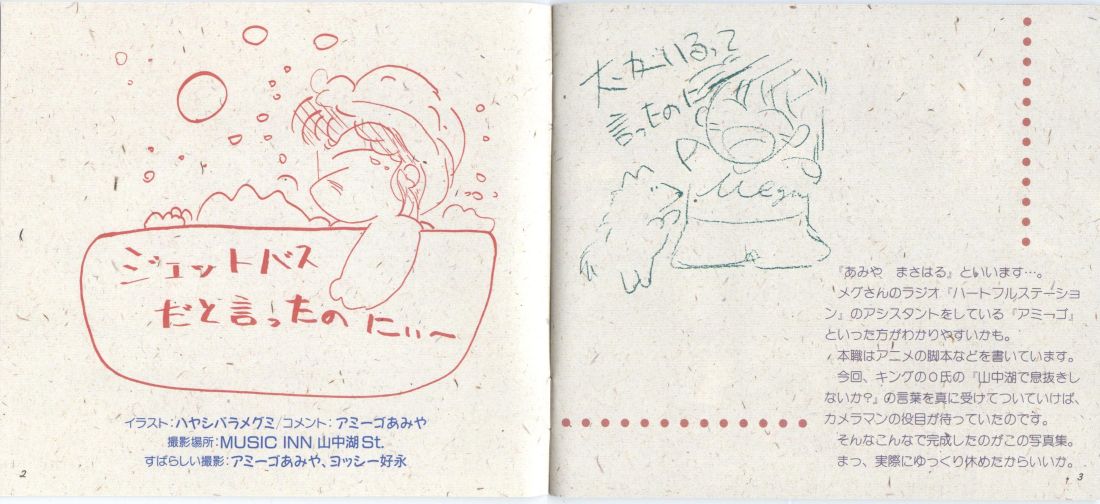 ジェットバス
だと言ったの にぃぃ〜
イラスト：ハヤシバラメグミ/コメント：アミーゴあみや
撮影場所：MUSIC INN 山中湖St.
すばらしい撮影：アミーゴあみや、ヨッシー好永
2
犬がいるって
言ったのに
Megumi
『あみや　まさはる』といいます…。
メグさんのラジオ『ハートフルステーショ
ン』のアシスタントをしている『アミーゴ』
といった方がわかりやすいかも。
本職はアニメの脚本などを書いています。
今回、キングのO氏の『山中湖で息抜きし
ないか?』の言葉を真に受けてついていけば、
カメラマンの役目が待っていたのです。
そんなこんなで完成したのがこの写真集。
まっ、実際にゆっくり休めたからいいか。
3